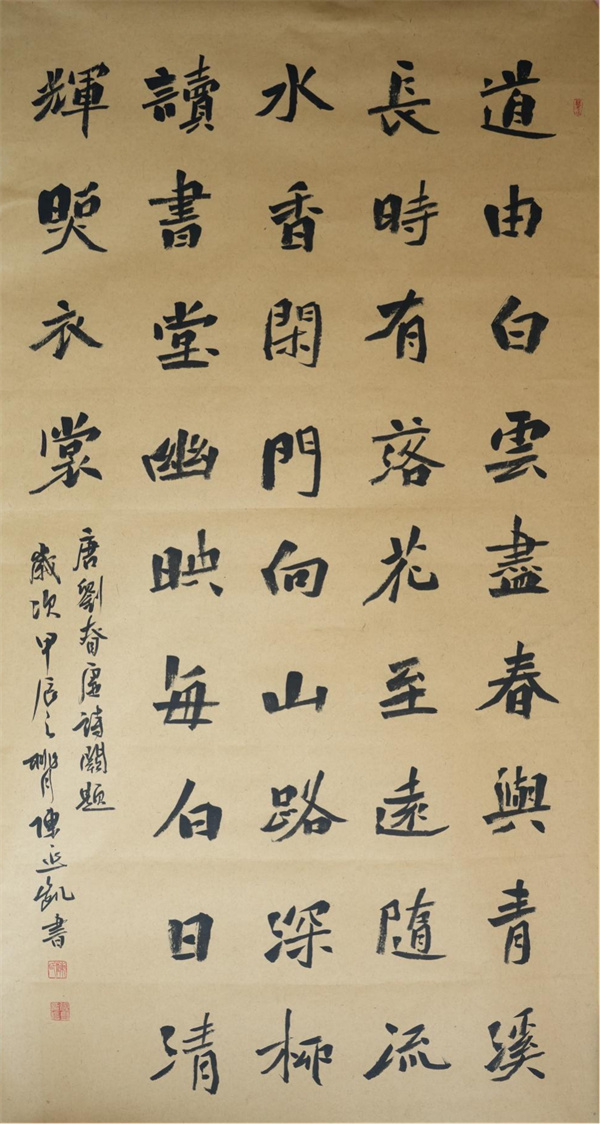 道由白雲盡春與青溪
長時有落花至遠隨流
水香閑門向山路深柳
讀書堂幽映每白日清
輝照衣裳
唐劉眘虛詩闕題
歲次甲辰之 陳延凱書